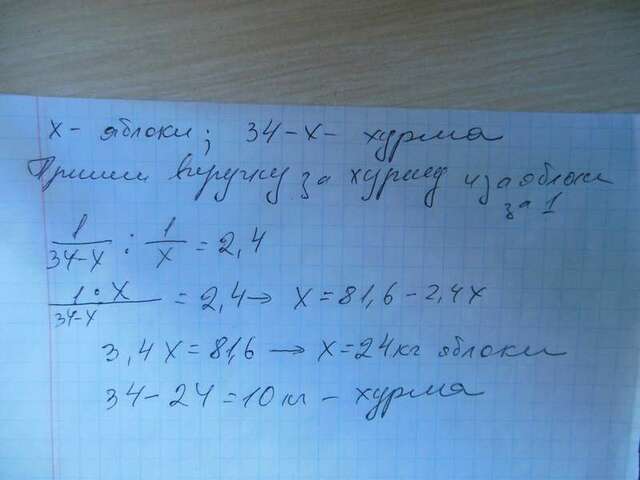 х - яблоки; 34-х - хурма
Примем выручку за хурму и за яблоки
за 1
1/(34-х) : 1/х = 2,4
(1·х)/(34-х) = 2,4 → х = 81,6 - 2,4х
3,4х = 81,6 → х = 24 кг яблоки
34 - 24 = 10 кг - хурма